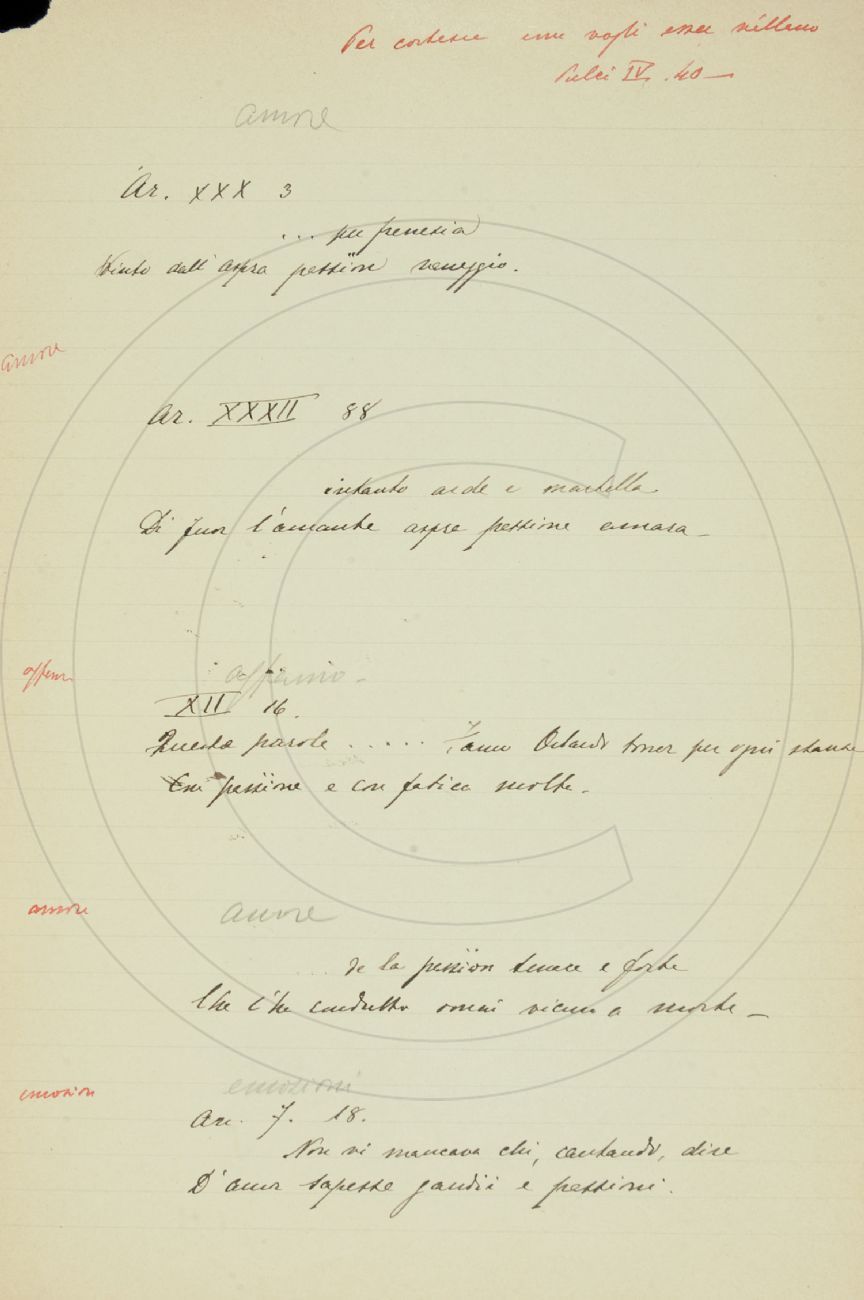 Per cortesia non vogli esser villano
Pulci IV. 40 —
amore
Ar. XXX 3
... per frenesia
Vinto dall' aspra passïon vaneggio.
amore
Ar. XXXII 88
intanto arde e martella
Di fuor l'amante aspra passione amara —
affanno
affanno —
XII 16.
Questa parole ..... Fanno Orlando tornar per ogni stanza
Con passïone e con fatica molta.
amore
amore
... de la passïon tenace e forte
Che l'ha condutto omai vicino a morte —
emozioni
emozioni
Ar. 7. 18.
Non vi mancava chi, cantando, dire
D'amor sapesse gaudii e passïoni.